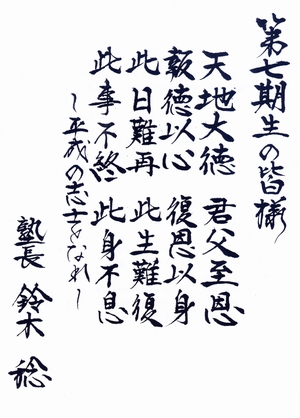 第七期生の皆様
天地大徳 君父至恩
報徳以心 復恩以身
此日難再 此生難復
此事不終 此身不息
~平成の志士となれ~
塾長 鈴木 稔